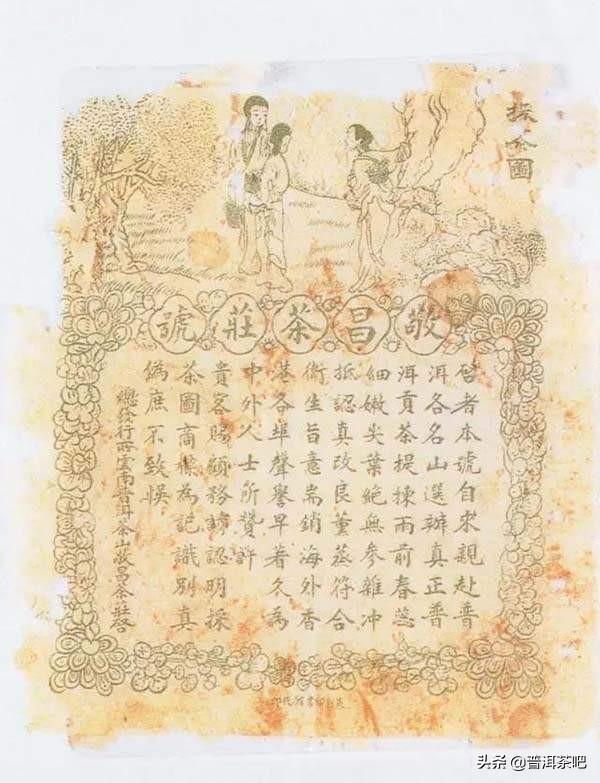 採茶圖
敬昌茶莊號
啓者本號自求親赴普
洱各名山選辦真正普
洱貢茶提揀雨前春蕊
細嫩尖葉絕無參雜冲
抵認真改良薰蒸符合
衛生旨意耑銷海外香
港各埠聲譽早著久為
中外人士所贊許
貴客賜顧務請認明採
茶圖商標為記識別真
僞庶不致悞
總發行所雲南普洱茶山敬昌茶莊啓
头条 @普洱茶吧